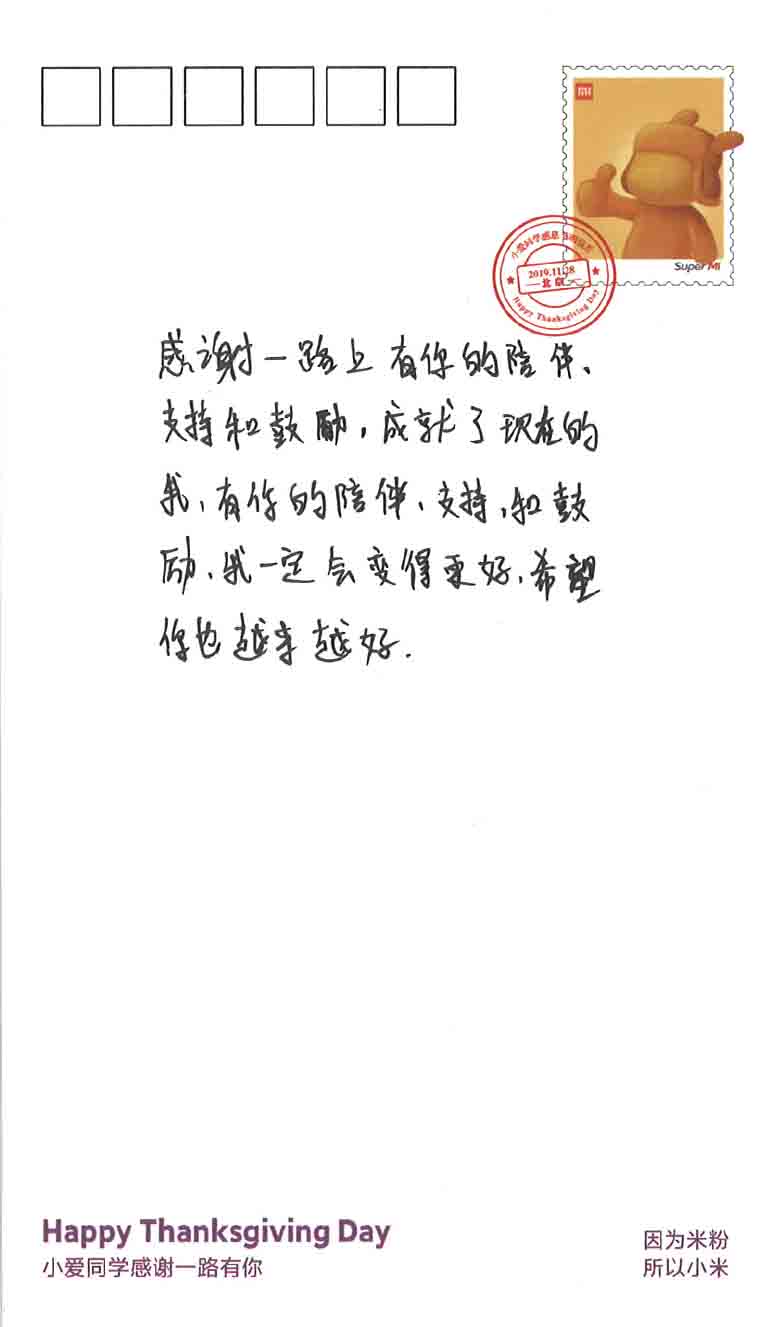 MI
Super Mi
小爱同学感恩
2019.11.28
北京
Happy Thanksgiving Day
感谢一路上有你的陪伴、
支持和鼓励，成就了现在的
我，有你的陪伴、支持，和鼓
励，我一定会变得更好，希望
你也越来越好.
Happy Thanksgiving Day
小爱同学感谢一路有你
因为米粉
所以小米